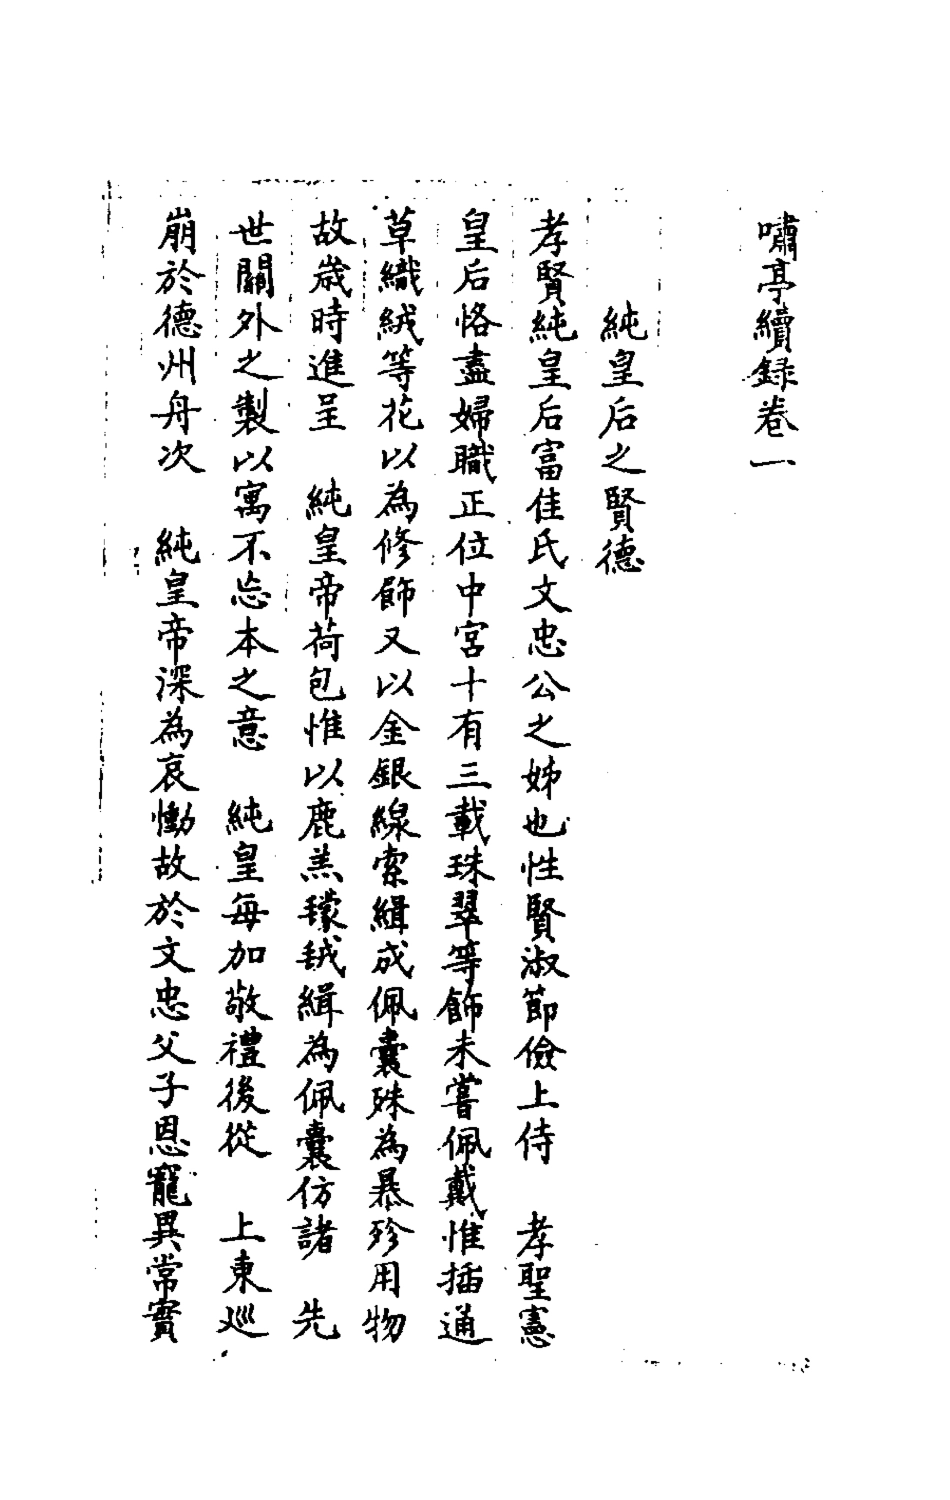 嘯亭續録卷一
純皇后之賢德
孝賢純皇后富佳氏文忠公之姊也性賢淑節儉上侍　孝聖憲
皇后恪盡婦職正位中宮十有三載珠翠等飾未嘗佩戴惟插通
草織絨等花以為修飾又以金銀線索緝成佩囊殊為暴殄用物
故歲時進呈　純皇帝荷包惟以鹿羔㲯毧緝為佩囊仿諸　先
世關外之製以寓不忘本之意　純皇每加敬禮後從　上東巡
崩於德州舟次　純皇帝深為哀慟故於文忠父子恩寵異常實